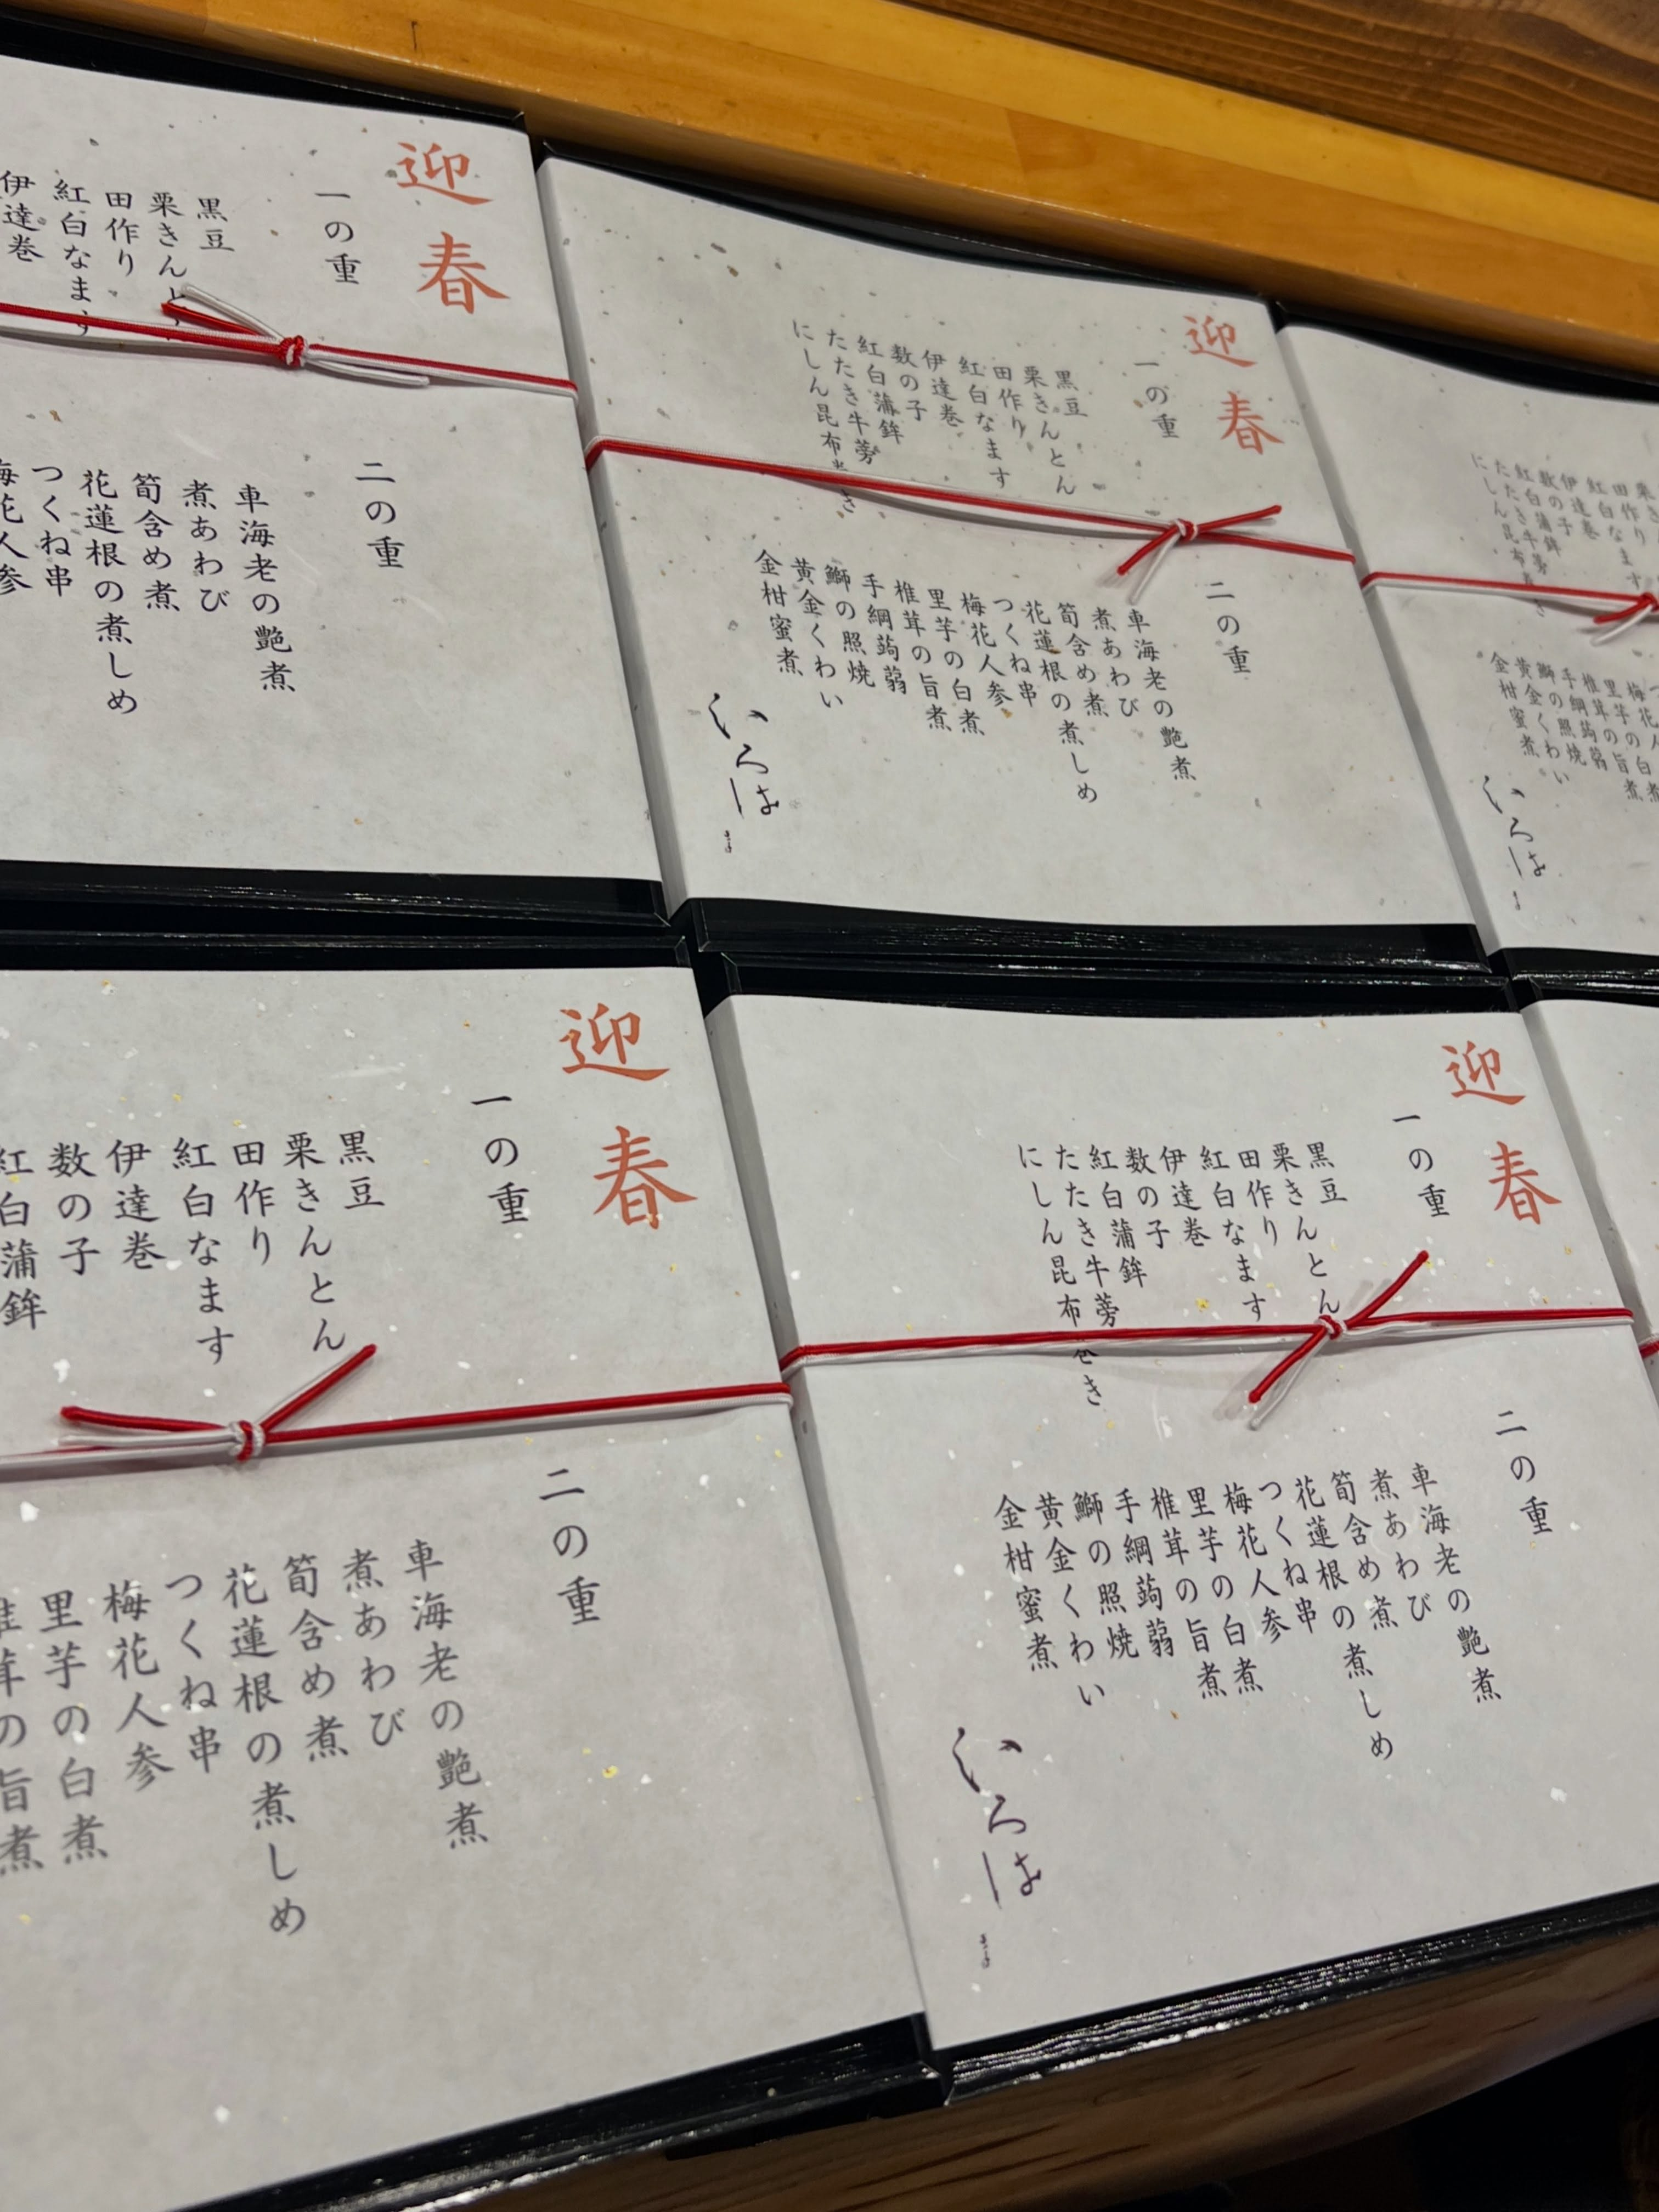 迎春
一の重
黒豆
栗きんとん
田作り
紅白なます
伊達巻
二の重
車海老の艶煮
煮あわび
筍含め煮
花蓮根の煮しめ
つくね串
梅花人参
迎春
一の重
黒豆
栗きんとん
田作り
紅白なます
伊達巻
数の子
紅白蒲鉾
たたき牛蒡
にしん昆布巻き
二の重
車海老の艶煮
煮あわび
筍含め煮
花蓮根の煮しめ
つくね串
梅花人参
里芋の白煮
椎茸の旨煮
手綱蒟蒻
鰤の照焼
黄金くわい
金柑蜜煮
いろは
田作り
紅白なます
伊達巻
数の子
紅白蒲鉾
たたき牛蒡
にしん昆布巻き
梅花人
里芋の白煮
椎茸の旨煮
手綱蒟蒻
鰤の照焼
黄金くわい
金柑蜜煮
いろは
迎春
一の重
黒豆
栗きんとん
田作り
紅白なます
伊達巻
数の子
紅白蒲鉾
二の重
車海老の艶煮
煮あわび
筍含め煮
花蓮根の煮しめ
つくね串
梅花人参
里芋の白煮
椎茸の旨煮
迎春
一の重
黒豆
栗きんとん
田作り
紅白なます
伊達巻
数の子
紅白蒲鉾
たたき牛蒡
にしん昆布巻き
二の重
車海老の艶煮
煮あわび
筍含め煮
花蓮根の煮しめ
つくね串
梅花人参
里芋の白煮
椎茸の旨煮
手綱蒟蒻
鰤の照焼
黄金くわい
金柑蜜煮
いろは